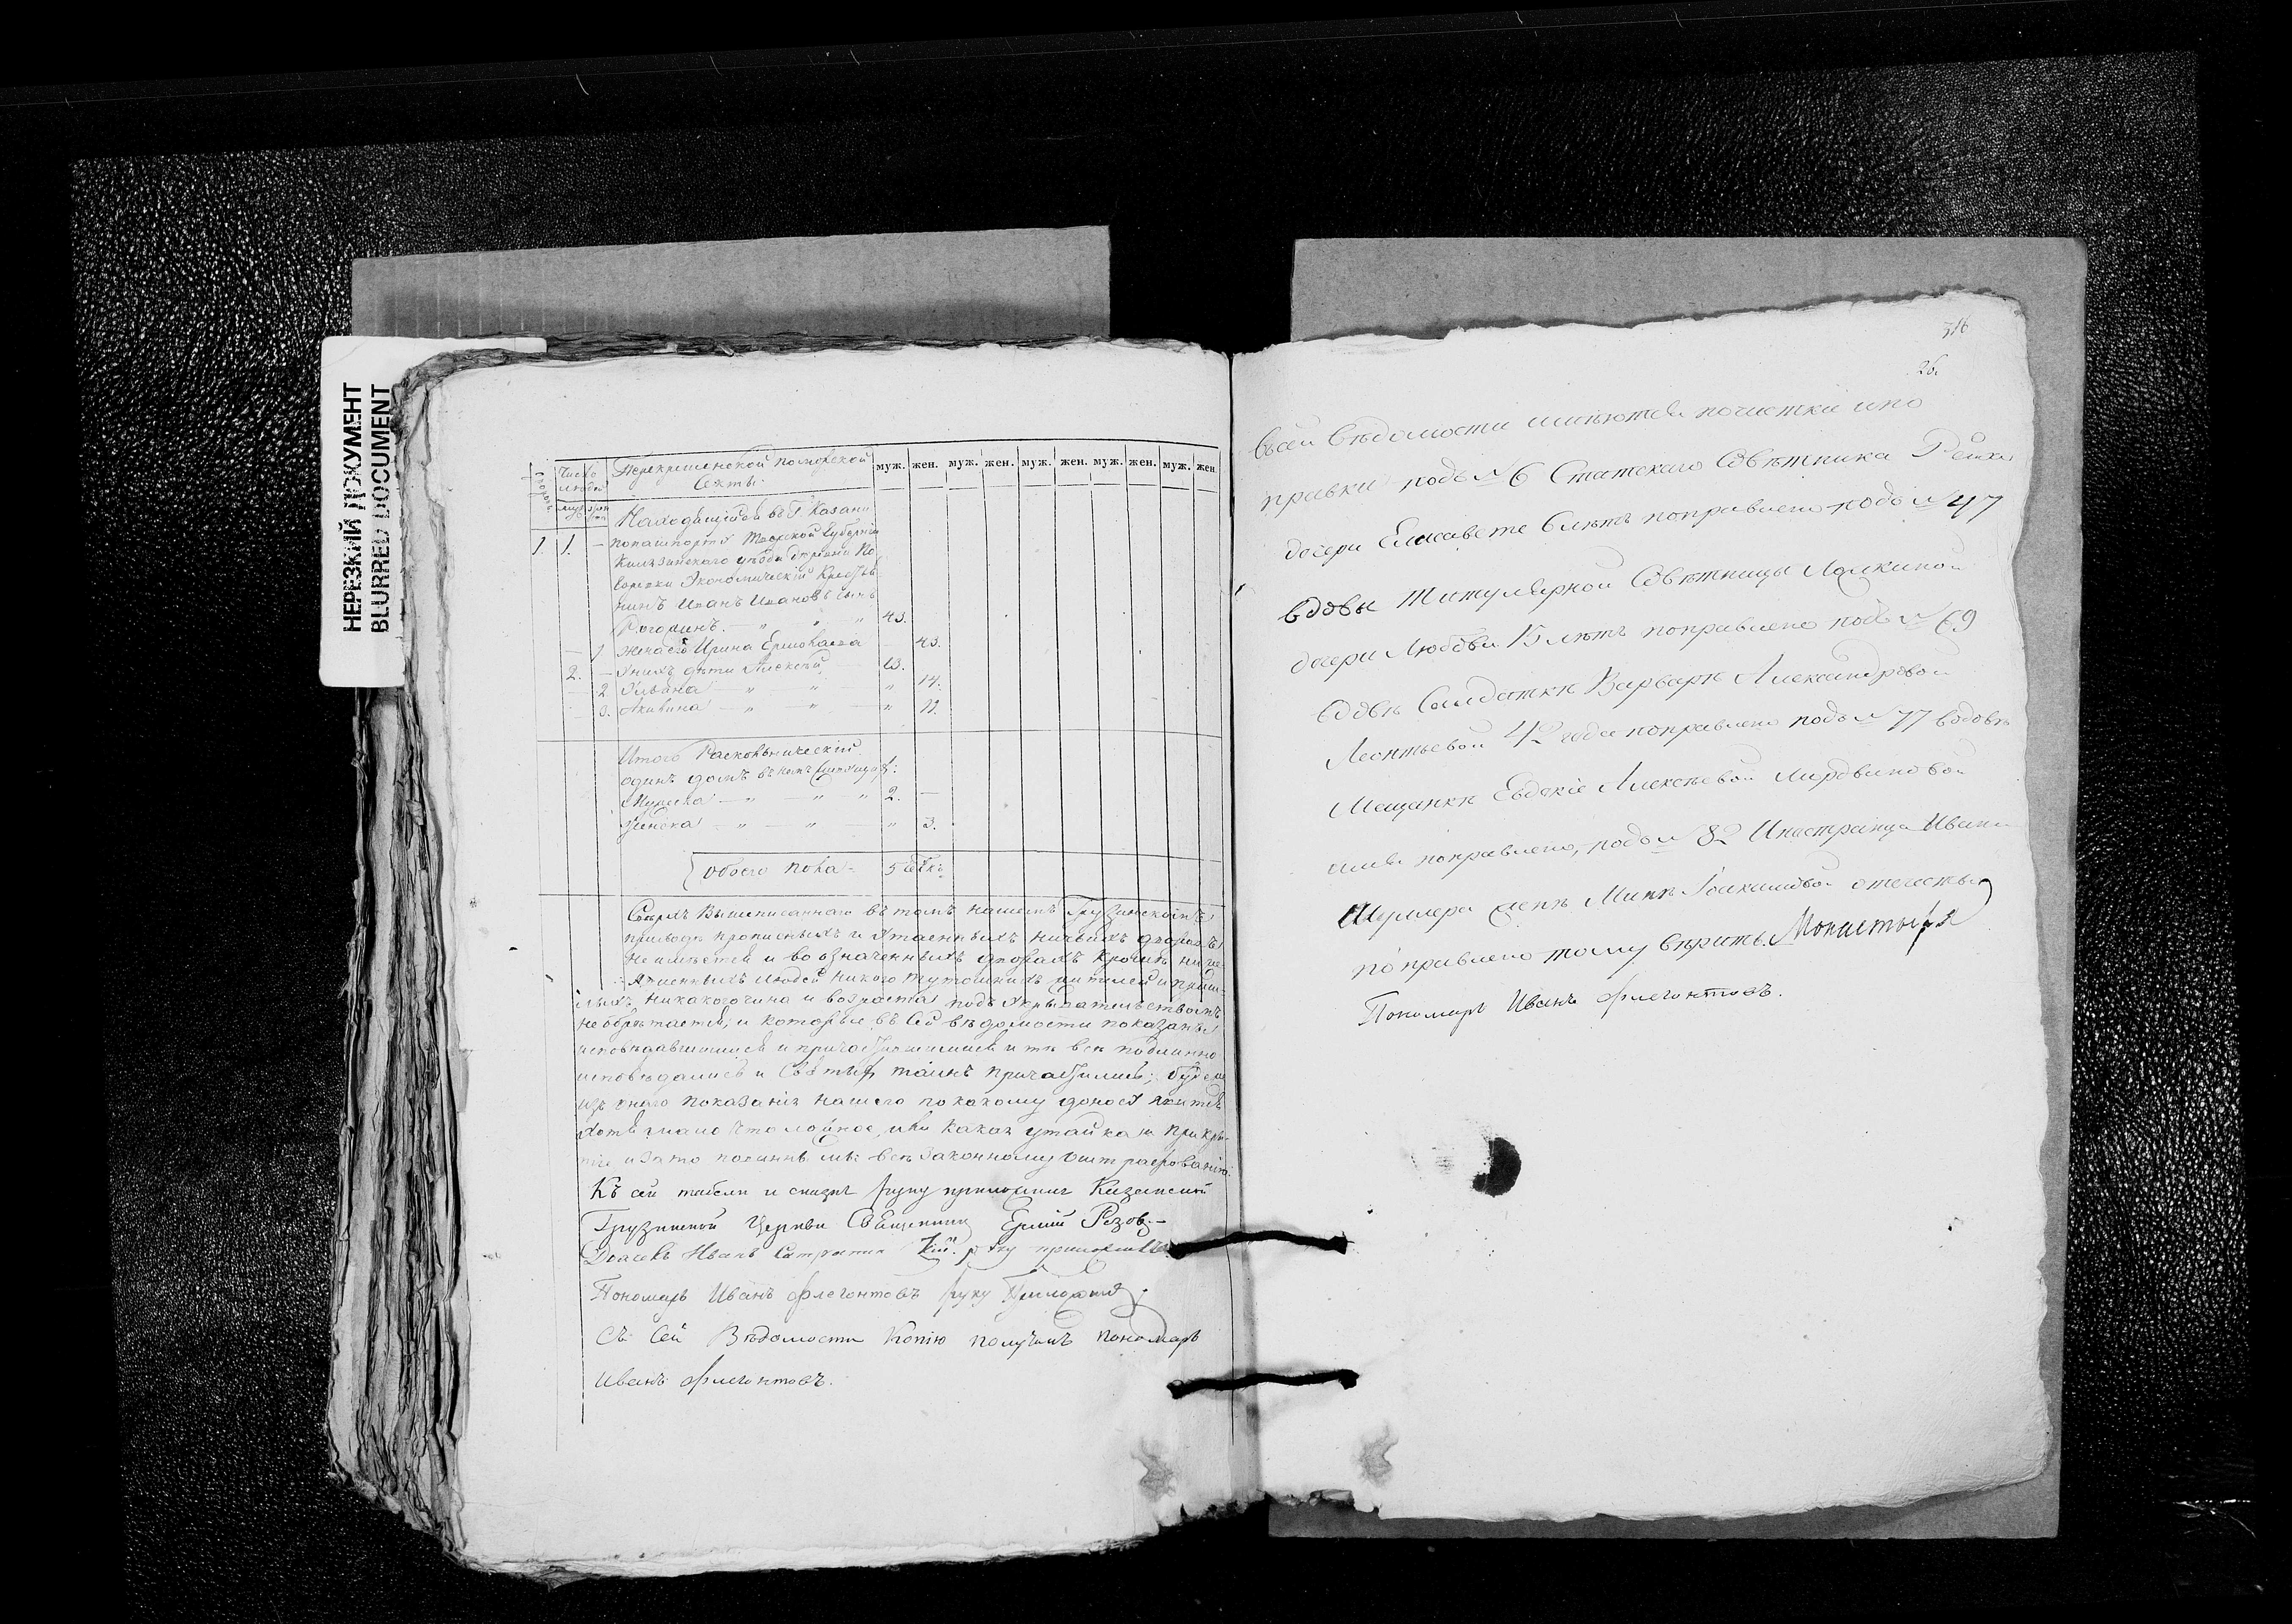 НЕРЕЗКИЙ ДОКУМЕНТ
BLURRED DOCUMENT
Число людей
Перекрещенской поморской
секты.
муж. жен. муж. жен. муж. жен. муж. жен. муж. жен.
Находящійся въ Г. Казани
1. 1. — попашпорту Тверской Губерніи
Колязинскаго уезда деревни
Экономическій Крестья
нинъ Иванъ Ивановъ сынъ
Рогозинъ. — „ „ „ 43.
— 1 жена его Ирина Ермолаева 43.
2. — Унихъ дети Алексей 13.
— 2 Ульяна — „ — „ — „ 14.
— 3. Акилина — „ — „ — „ 11.
Итого Раскольническій
одинъ домъ въ немъ
Мужска — „ — „ „ 2. —
Женска — „ — „ — „ 3.
обоего пола — 5
Сверхъ вышеписаннаго въ томъ нашемъ Грузинскомъ
приходе прописныхъ и утаенныхъ никакихъ дворовъ
не имѣется и во означенныхъ дворахъ кромѣ
людей никого тутошнихъ жителей и
никакого чина и возраста подъ укрывательствомъ
не обретается, и которые въ сей вѣдомости показаны
исповѣдавшимися и причастившимися и тѣ всѣ подлинно
исповѣдались и Святыхъ таинъ причастились; буде же
изъ онаго показанія нашего по какому доносу
хотя мало что ложное, или какая утайка и прикры-
тіе и за то повинны мы всѣ законному оштрафованію.
Къ сей табели и сказке руку приложилъ Казанской
Грузинской Церкви Священникъ Ермій Резов.
Дьячекъ Иванъ руку приложилъ
Пономарь Иванъ Флегонтовъ руку приложилъ.
Съ сей Вѣдомости Копію получилъ пономарь
Иванъ Флегонтовъ.
316
26.
Въсей вѣдомости имѣются почистки ипо
правки подъ № 6 Статскаго Совѣтника
дочери Елисавете 6 лѣтъ поправлено подъ № 47
вдовы Титулярной Совѣтницы
дочери Любови 15 лѣтъ поправлено подъ № 69
вдовѣ Солдаткѣ Варварѣ Александровой
Леонтьевой 42 года поправлено подъ № 77 вдовѣ
Мещанкѣ Евдокіе Алексѣевой
имя поправлено, подъ № 82 Иностранца Ивана
Шумлера женѣ отечество
поправлено тому вѣрить. Монастыря
Пономарь Иванъ Флегонтовъ.